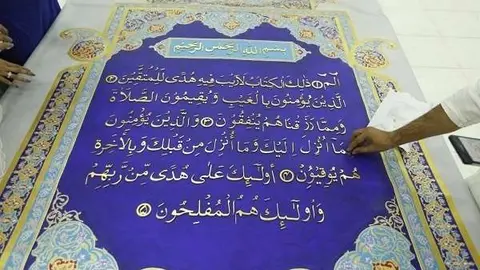 بسم الله الرحمن الرحيم
الٓمٓ ۝١ ذَٰلِكَ الْكِتَابُ لَا رَيْبَ فِيهِ هُدًى لِّلْمُتَّقِينَ ۝٢
الَّذِينَ يُؤْمِنُونَ بِالْغَيْبِ وَيُقِيمُونَ الصَّلَاةَ
وَمِمَّا رَزَقْنَاهُمْ يُنفِقُونَ ۝٣ وَالَّذِينَ يُؤْمِنُونَ
بِمَا أُنْزِلَ إِلَيْكَ وَمَا أُنْزِلَ مِن قَبْلِكَ وَبِالْآخِرَةِ
هُمْ يُوقِنُونَ ۝٤ أُولَٰئِكَ عَلَىٰ هُدًى مِّن رَّبِّهِمْ
وَأُولَٰئِكَ هُمُ الْمُفْلِحُونَ ۝٥